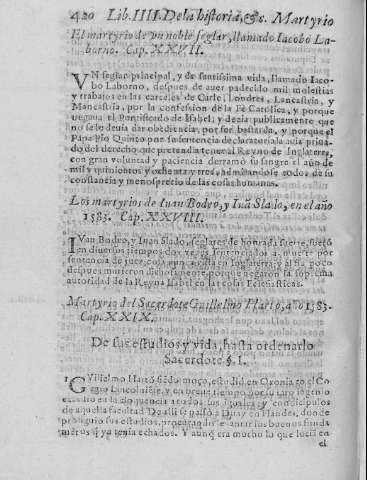 420 Lib. IIII. De la historia, &c. Martyrio
El martyrio de vn noble seglar, llamado Iacobo La-
borno. Cap. XXVII.
VN seglar principal, y de santissima vida, llamado Iaco-
bo Laborno, despues de auer padecido mil molestias
y trabajos en las carceles de Carle, Londres, Lancastria, y
Mancastria, por la confession de la Fè Católica, y porque
negaua el Pontificado de Isabel; y dezia publicamente que
no se le deuia dar obediencia, por ser bastarda, y porque el
Papa Pio Quinto por su sentencia declaratoria la auia priua-
do del derecho que pretendia tener al Reyno de Inglaterra,
con gran voluntad y paciencia derramò su sangre el año de
mil y quinientos y ochenta y tres, admirandose todos de su
constancia y menosprecio de las cosas humanas.
Los martyrios de Iuan Bodeo, y Iuã Slado, en el año
1583. Cap. XXVIII.
IVan Bodeo, y Iuan Slado, seglares de honrada suerte,
en diuersos tiempos dos vezes sentenciados a muerte por
sentencia de
despues murieron porque negaron la suprema
autoridad de la Reyna Isabel en las cosas Eclesiasticas.
Martyrio del Sacerdote Guillelmo Harto, año 1583.
Cap. XXIX.
De sus estudios y vida, hasta ordenarse
Sacerdote §. I.
GVillelmo Harto siẽdo moço, estudiò en Oxonia en el Co-
legio Lincolniese, y en breue tiempo por su raro ingenio
en la eloquencia a todos sus iguales, y condicipulos
de aquella facultad. De alli se passò a Duay en Flandes, donde
prosiguiò sus estudios, procurando leuantar los buenos funda
mẽtos q̃ ya tenia echados. Y aunq̃ era mucho lo que lucia en
el